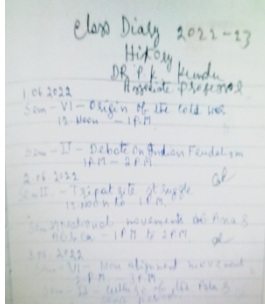 Class Diary 2022-23
History
DR. P. K. Kundu
Associate Professor
1.06.2022
Sem - VI - Origin of the cold war
12 Noon - 1 P.M.
Sem - II - Debate on Indian Feudalism
1 P.M - 2 P.M.
2.06.2022
Sem II - Tripartite struggle
12 Noon to 1 P.M.
National movements in Asia &
Africa - 1 P.M to 2 P.M.
3.06.2022
Sem - VI - Non aligned movement
P.M - P.M.
Sem - II - Culture of the Pala &